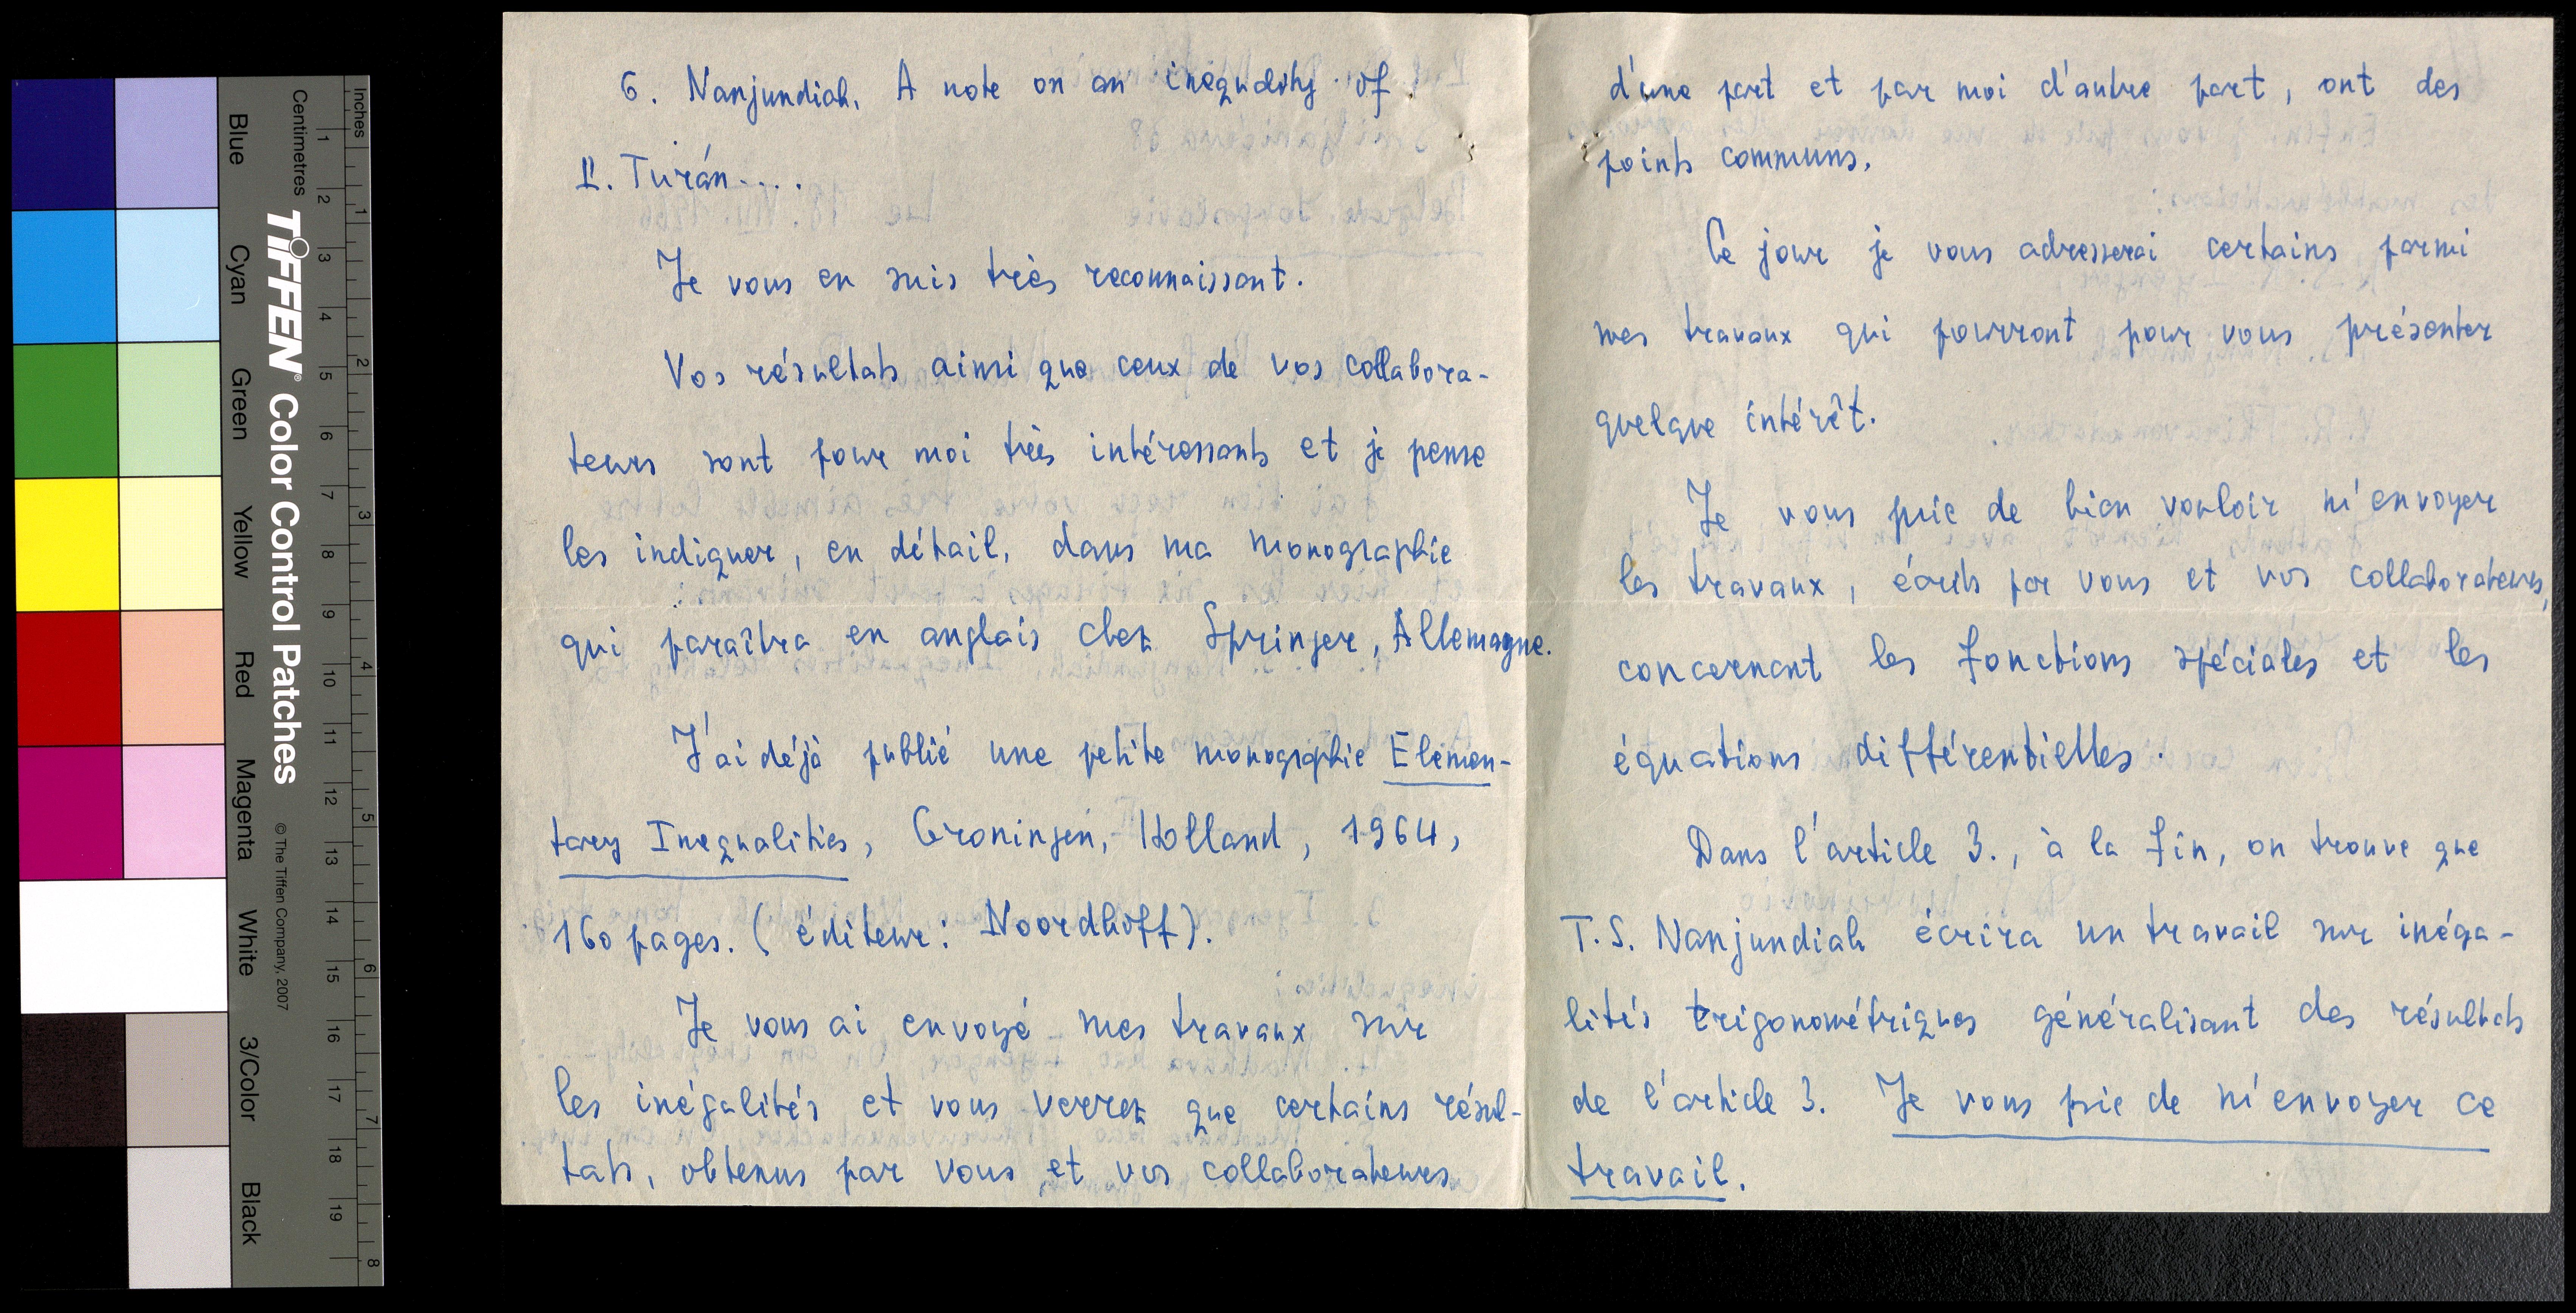 Inches
Centimetres
1 2 3 4 5 6 7 8 9 10 11 12 13 14 15 16 17 18 19
1 2 3 4 5 6 7 8
TIFFEN® Color Control Patches
© The Tiffen Company, 2007
Blue
Cyan
Green
Yellow
Red
Magenta
White
3/Color
Black
6. Nanjundiah, A note on an inequality of
P. Turán....
Je vous en suis très reconnaissant.
Vos résultats ainsi que ceux de vos collabora-
teurs sont pour moi très intéressants et je pense
les indiquer, en détail, dans ma monographie
qui paraîtra en anglais chez Springer, Allemagne.
J'ai déjà publié une petite monographie Elemen-
tary Inequalities, Groningen, Holland, 1964,
160 pages. (éditeur: Noordhoff).
Je vous ai envoyé mes travaux sur
les inégalités et vous verrez que certains résul-
tats, obtenus par vous et vos collaborateurs
d'une part et par moi d'autre part, ont des
points communs.
Ce jour je vous adresserai certains parmi
mes travaux qui pourront pour vous présenter
quelque intérêt.
Je vous prie de bien vouloir m'envoyer
les travaux, écrits par vous et vos collaborateurs,
concernant les fonctions spéciales et les
équations différentielles.
Dans l'article 3., à la fin, on trouve que
T.S. Nanjundiah écrira un travail sur inéga-
lités trigonométriques généralisant des résultats
de l'article 3. Je vous prie de m'envoyer ce
travail.